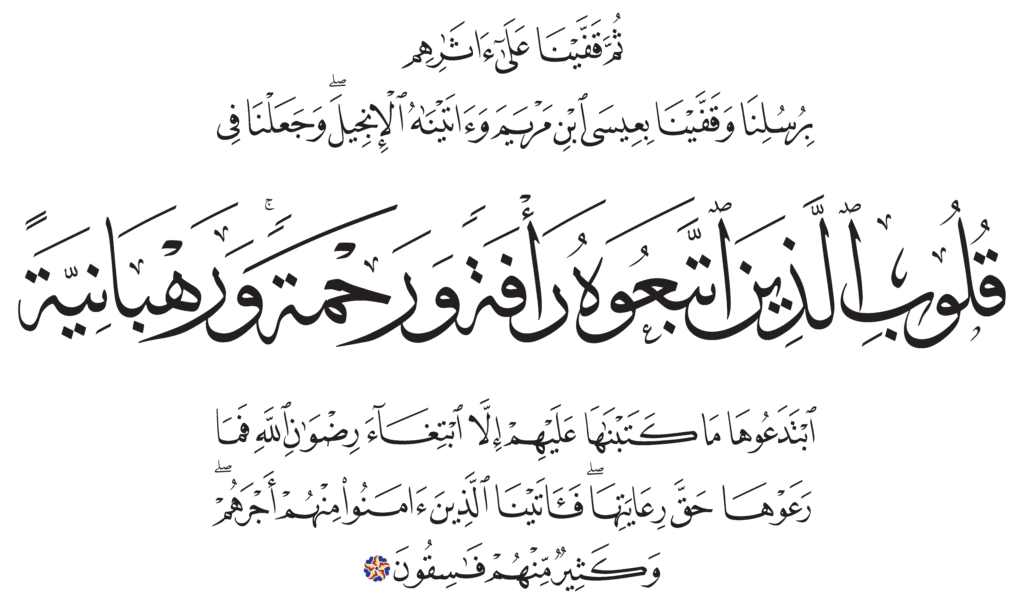 ثُمَّ قَفَّيْنَا عَلَىٰٓ ءَاثَٰرِهِم
بِرُسُلِنَا وَقَفَّيْنَا بِعِيسَى ٱبْنِ مَرْيَمَ وَءَاتَيْنَٰهُ ٱلْإِنجِيلَۖ وَجَعَلْنَا فِى
قُلُوبِ ٱلَّذِينَ ٱتَّبَعُوهُ رَأْفَةً وَرَحْمَةًۚ وَرَهْبَانِيَّةً
ٱبْتَدَعُوهَا مَا كَتَبْنَٰهَا عَلَيْهِمْ إِلَّا ٱبْتِغَآءَ رِضْوَٰنِ ٱللَّهِ فَمَا
رَعَوْهَا حَقَّ رِعَايَتِهَاۖ فَـَٔاتَيْنَا ٱلَّذِينَ ءَامَنُوا۟ مِنْهُمْ أَجْرَهُمْۖ
وَكَثِيرٌ مِّنْهُمْ فَٰسِقُونَ